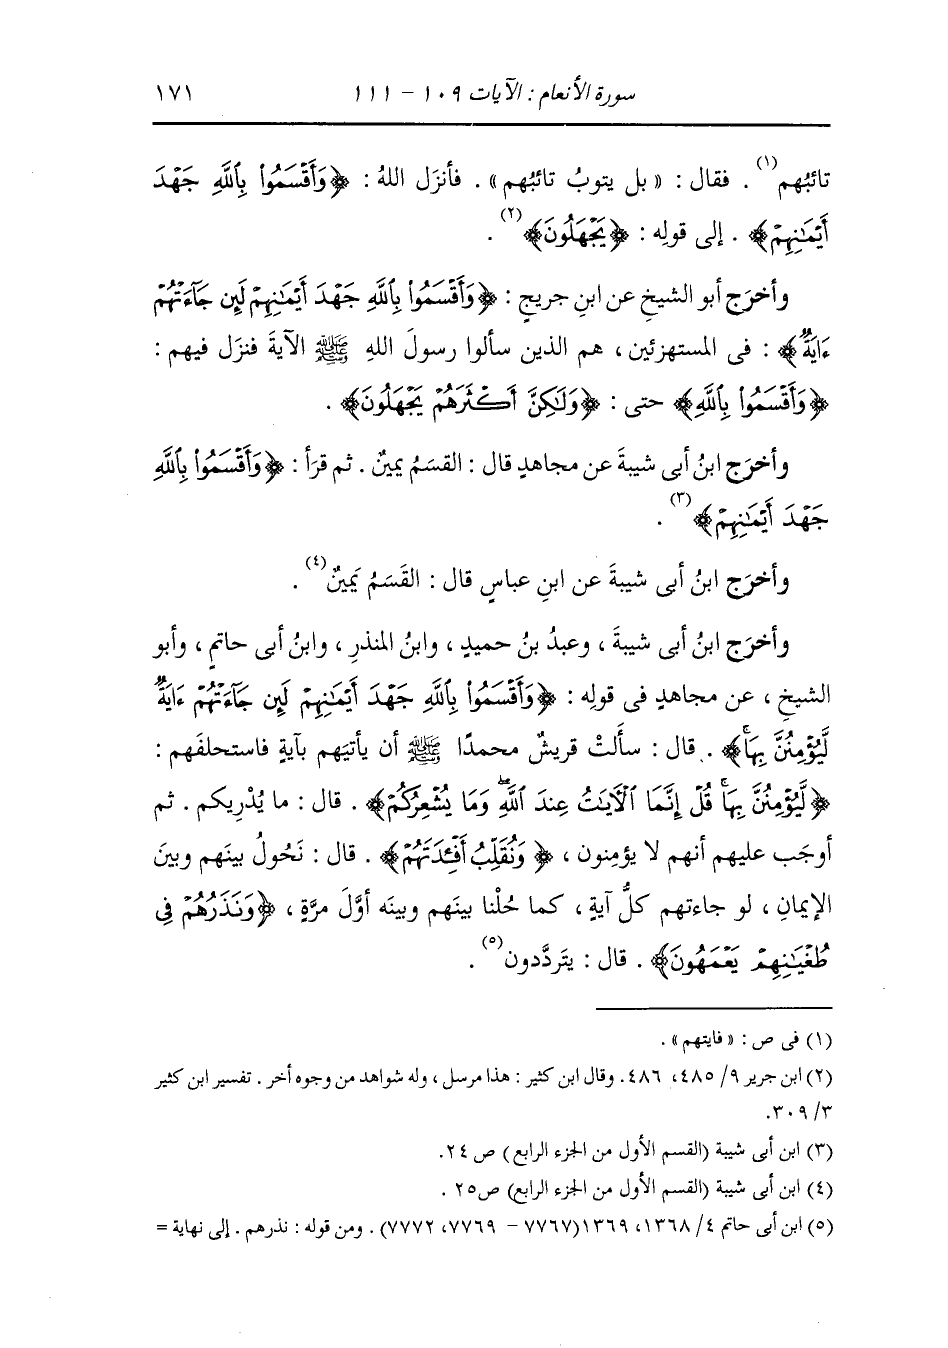 سورة الأنعام : الآيات ١٠٩ - ١١١ ١٧١
تائبُهم(١) . فقال : « بل يتوبُ تائبُهم » . فأنزَل اللهُ : ﴿وَأَقۡسَمُواْ بِٱللَّهِ جَهۡدَ
أَيۡمَٰنِهِمۡ﴾ . إلى قولِه : ﴿يَجۡهَلُونَ﴾(٢) .
وأخرَج أبو الشيخِ عن ابنِ جريجٍ : ﴿وَأَقۡسَمُواْ بِٱللَّهِ جَهۡدَ أَيۡمَٰنِهِمۡ لَئِن جَآءَتۡهُمۡ
ءَايَةٞ﴾ : فى المستهزئين ، هم الذين سألوا رسولَ اللهِ ﷺ الآيةَ فنزَل فيهم :
﴿وَأَقۡسَمُواْ بِٱللَّهِ﴾ حتى : ﴿وَلَٰكِنَّ أَكۡثَرَهُمۡ يَجۡهَلُونَ﴾ .
وأخرَج ابنُ أبى شيبةَ عن مجاهدٍ قال : القسَمُ يمينٌ . ثم قرَأ : ﴿وَأَقۡسَمُواْ بِٱللَّهِ
جَهۡدَ أَيۡمَٰنِهِمۡ﴾(٣) .
وأخرَج ابنُ أبى شيبةَ عن ابنِ عباسٍ قال : القَسَمُ يَمِينٌ(٤) .
وأخرَج ابنُ أبى شيبةَ ، وعبدُ بنُ حميدٍ ، وابنُ المنذرِ ، وابنُ أبى حاتمٍ ، وأبو
الشيخِ ، عن مجاهدٍ فى قولِه : ﴿وَأَقۡسَمُواْ بِٱللَّهِ جَهۡدَ أَيۡمَٰنِهِمۡ لَئِن جَآءَتۡهُمۡ ءَايَةٞ
لَّيُؤۡمِنُنَّ بِهَاۚ﴾ . قال : سألَتْ قريشٌ محمدًا ﷺ أن يأتيَهم بآيةٍ فاستحلَفَهم :
﴿لَّيُؤۡمِنُنَّ بِهَاۚ قُلۡ إِنَّمَا ٱلۡأٓيَٰتُ عِندَ ٱللَّهِۖ وَمَا يُشۡعِرُكُمۡ﴾ . قال : ما يُدْرِيكم . ثم
أوجَب عليهم أنهم لا يؤمِنون ، ﴿وَنُقَلِّبُ أَفۡـِٔدَتَهُمۡ﴾ . قال : نَحُولُ بينَهم وبينَ
الإيمانِ ، لو جاءتهم كلُّ آيةٍ ، كما حُلْنا بينَهم وبينَه أوَّلَ مرَّةٍ ، ﴿وَنَذَرُهُمۡ فِي
طُغۡيَٰنِهِمۡ يَعۡمَهُونَ﴾ . قال : يتَردَّدون(٥) .
(١) فى ص : « فايتهم » .
(٢) ابن جرير ٩/ ٤٨٥، ٤٨٦. وقال ابن كثير : هذا مرسل ، وله شواهد من وجوه أخر . تفسير ابن كثير
٣/ ٣٠٩.
(٣) ابن أبى شيبة (القسم الأول من الجزء الرابع) ص ٢٤.
(٤) ابن أبى شيبة (القسم الأول من الجزء الرابع) ص٢٥ .
(٥) ابن أبى حاتم ٤/ ١٣٦٨، ١٣٦٩(٧٧٦٧ - ٧٧٦٩، ٧٧٧٢) . ومن قوله : نذرهم . إلى نهاية =